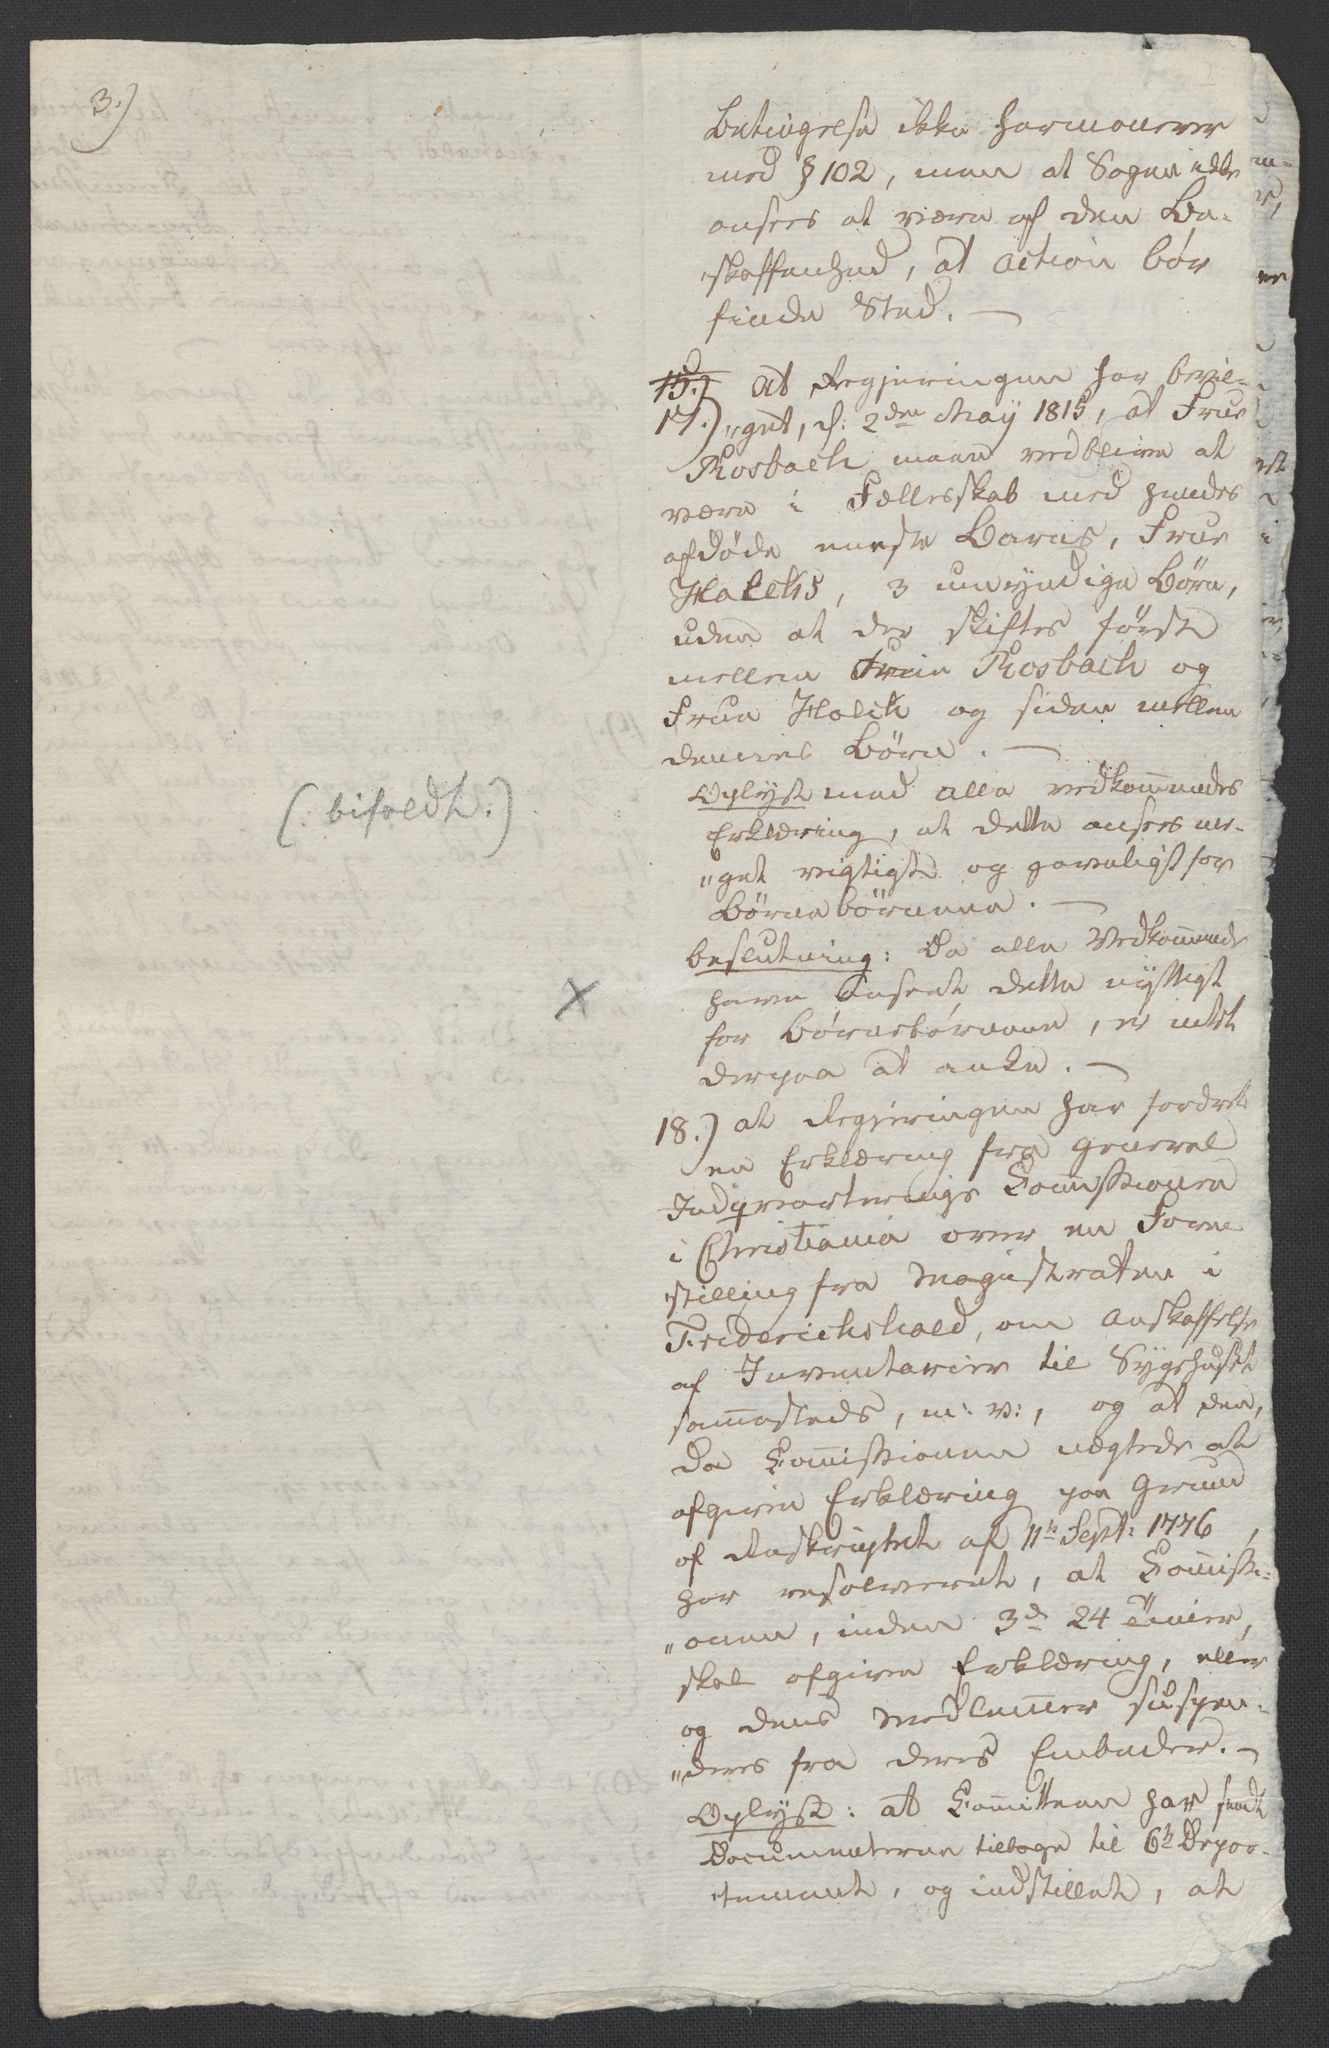 3.)
Betingelse ikke harmonerer
med § 102, men at Sagen ikke
ansees at være af den Be-
skaffenhed, at action bör
finde Sted. —
15.) at Regjeringen har bevil-
17.) „get, d: 2den May 1815, at Frue
Rosbach maae vedblive at
være i Fællesskab med hendes
afdöde eneste Barns, Frue
Holcks, 3 umyndige Börn,
uden at der skiftes förste
mellem Frue Rosbach og
Frue Holck og siden mellem
dennes Börn. —
Oplyst med alle vedkommendes
Erklæring, at dette ansees me-
„get vigtigt og gavnligt for
Börnebörnene. —
beslutning: Da alle Vedkommende
have anseet dette nyttigt
for Börnebörnene, er intet
derpaa at anke. —
(: bifaldt :)
18.) at Regjeringen har fordret
en Erklæring fra General
Indqvarterings Commissionen
i Christiania over en Fore
stilling fra Magistraten i
Friderichshald, om Anskaffelse
af Inventarier til Sygehuset
sammesteds, m: v:, og at den,
da Commissionen nægtede at
afgive Erklæring paa Grund
af Rescriptet af 11te Sept: 1776,
har resolveret, at Commissi-
„onen, inden 3de 24 Timer,
skal afgive Erklæring, eller
og dens Medlemmer suspen-
„deres fra deres Embeder. —
Oplyst: at Committeen har sendt
Documenterne tilbage til 6te Depar-
tement, og indstillet, at